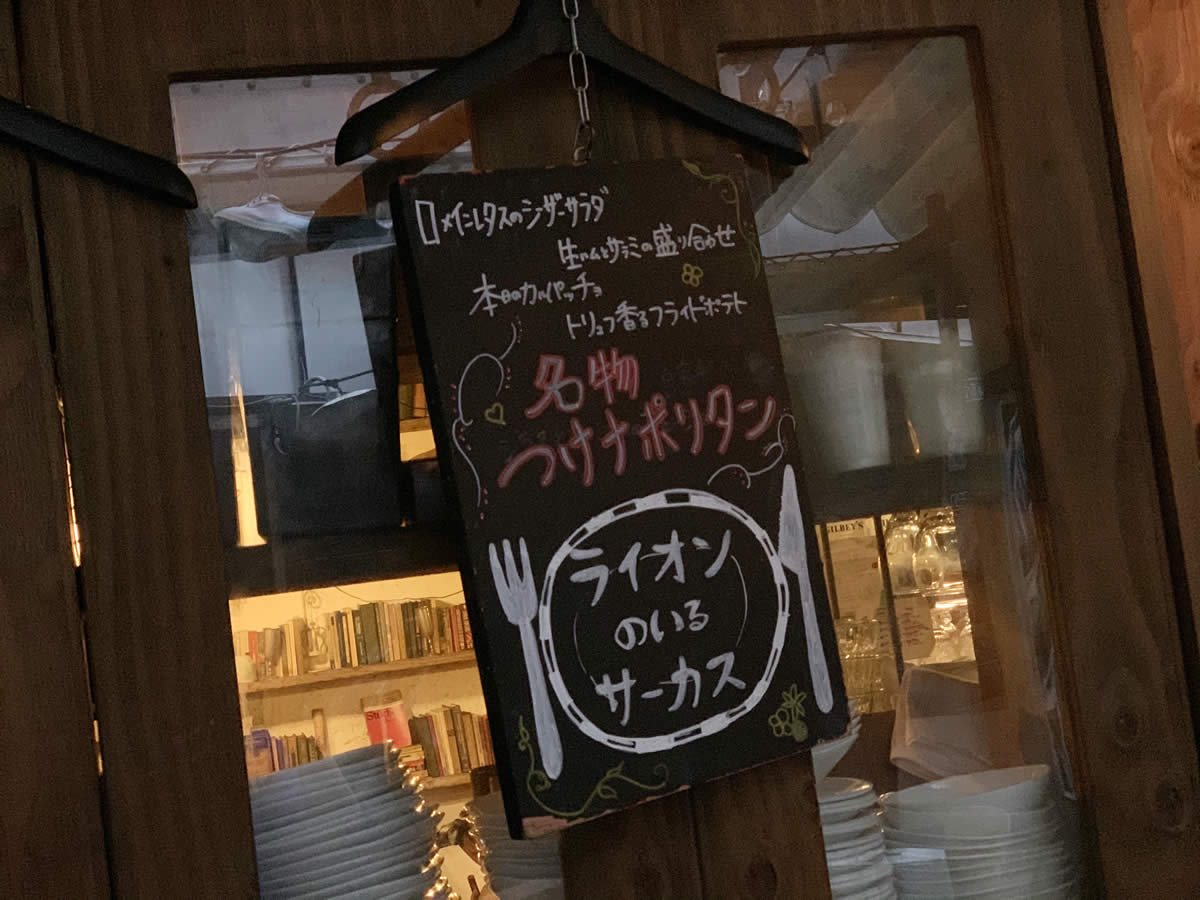 ロメインレタスのシーザーサラダ
生ハムとサラミの盛り合わせ
本日のカルパッチョ
トリュフ香るフライドポテト
名物
つけナポリタン
ライオン
のいる
サーカス
GILBEY'S